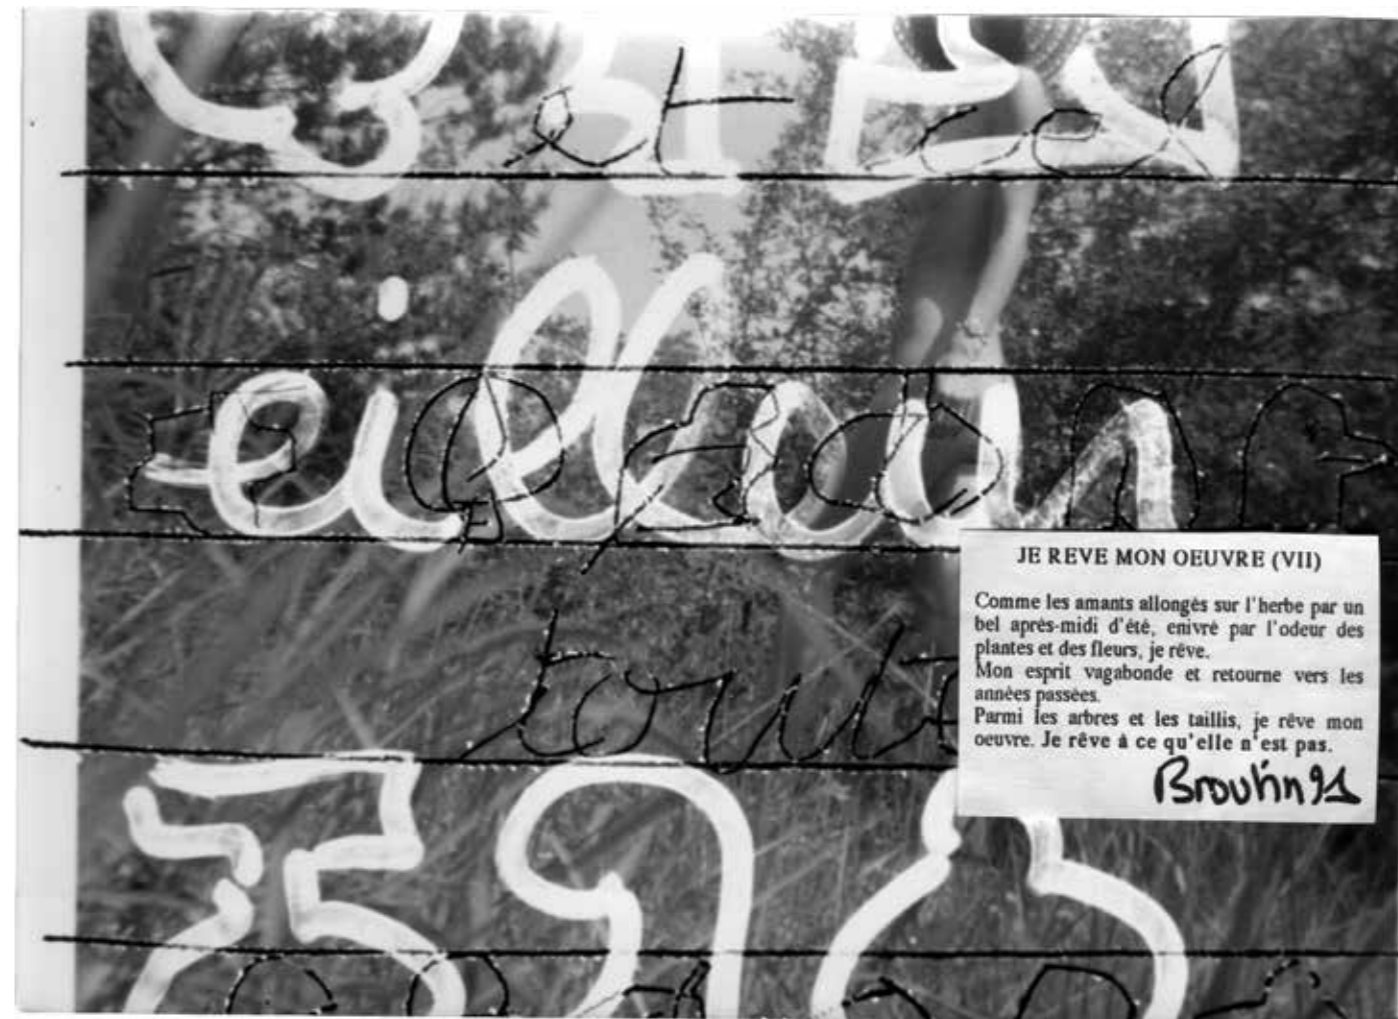 et
eillan
tout
JE REVE MON OEUVRE (VII)
Comme les amants allongés sur l'herbe par un
bel après-midi d'été, enivré par l'odeur des
plantes et des fleurs, je rêve.
Mon esprit vagabonde et retourne vers les
années passées.
Parmi les arbres et les taillis, je rêve mon
oeuvre. Je rêve à ce qu'elle n'est pas.
Broutin 91